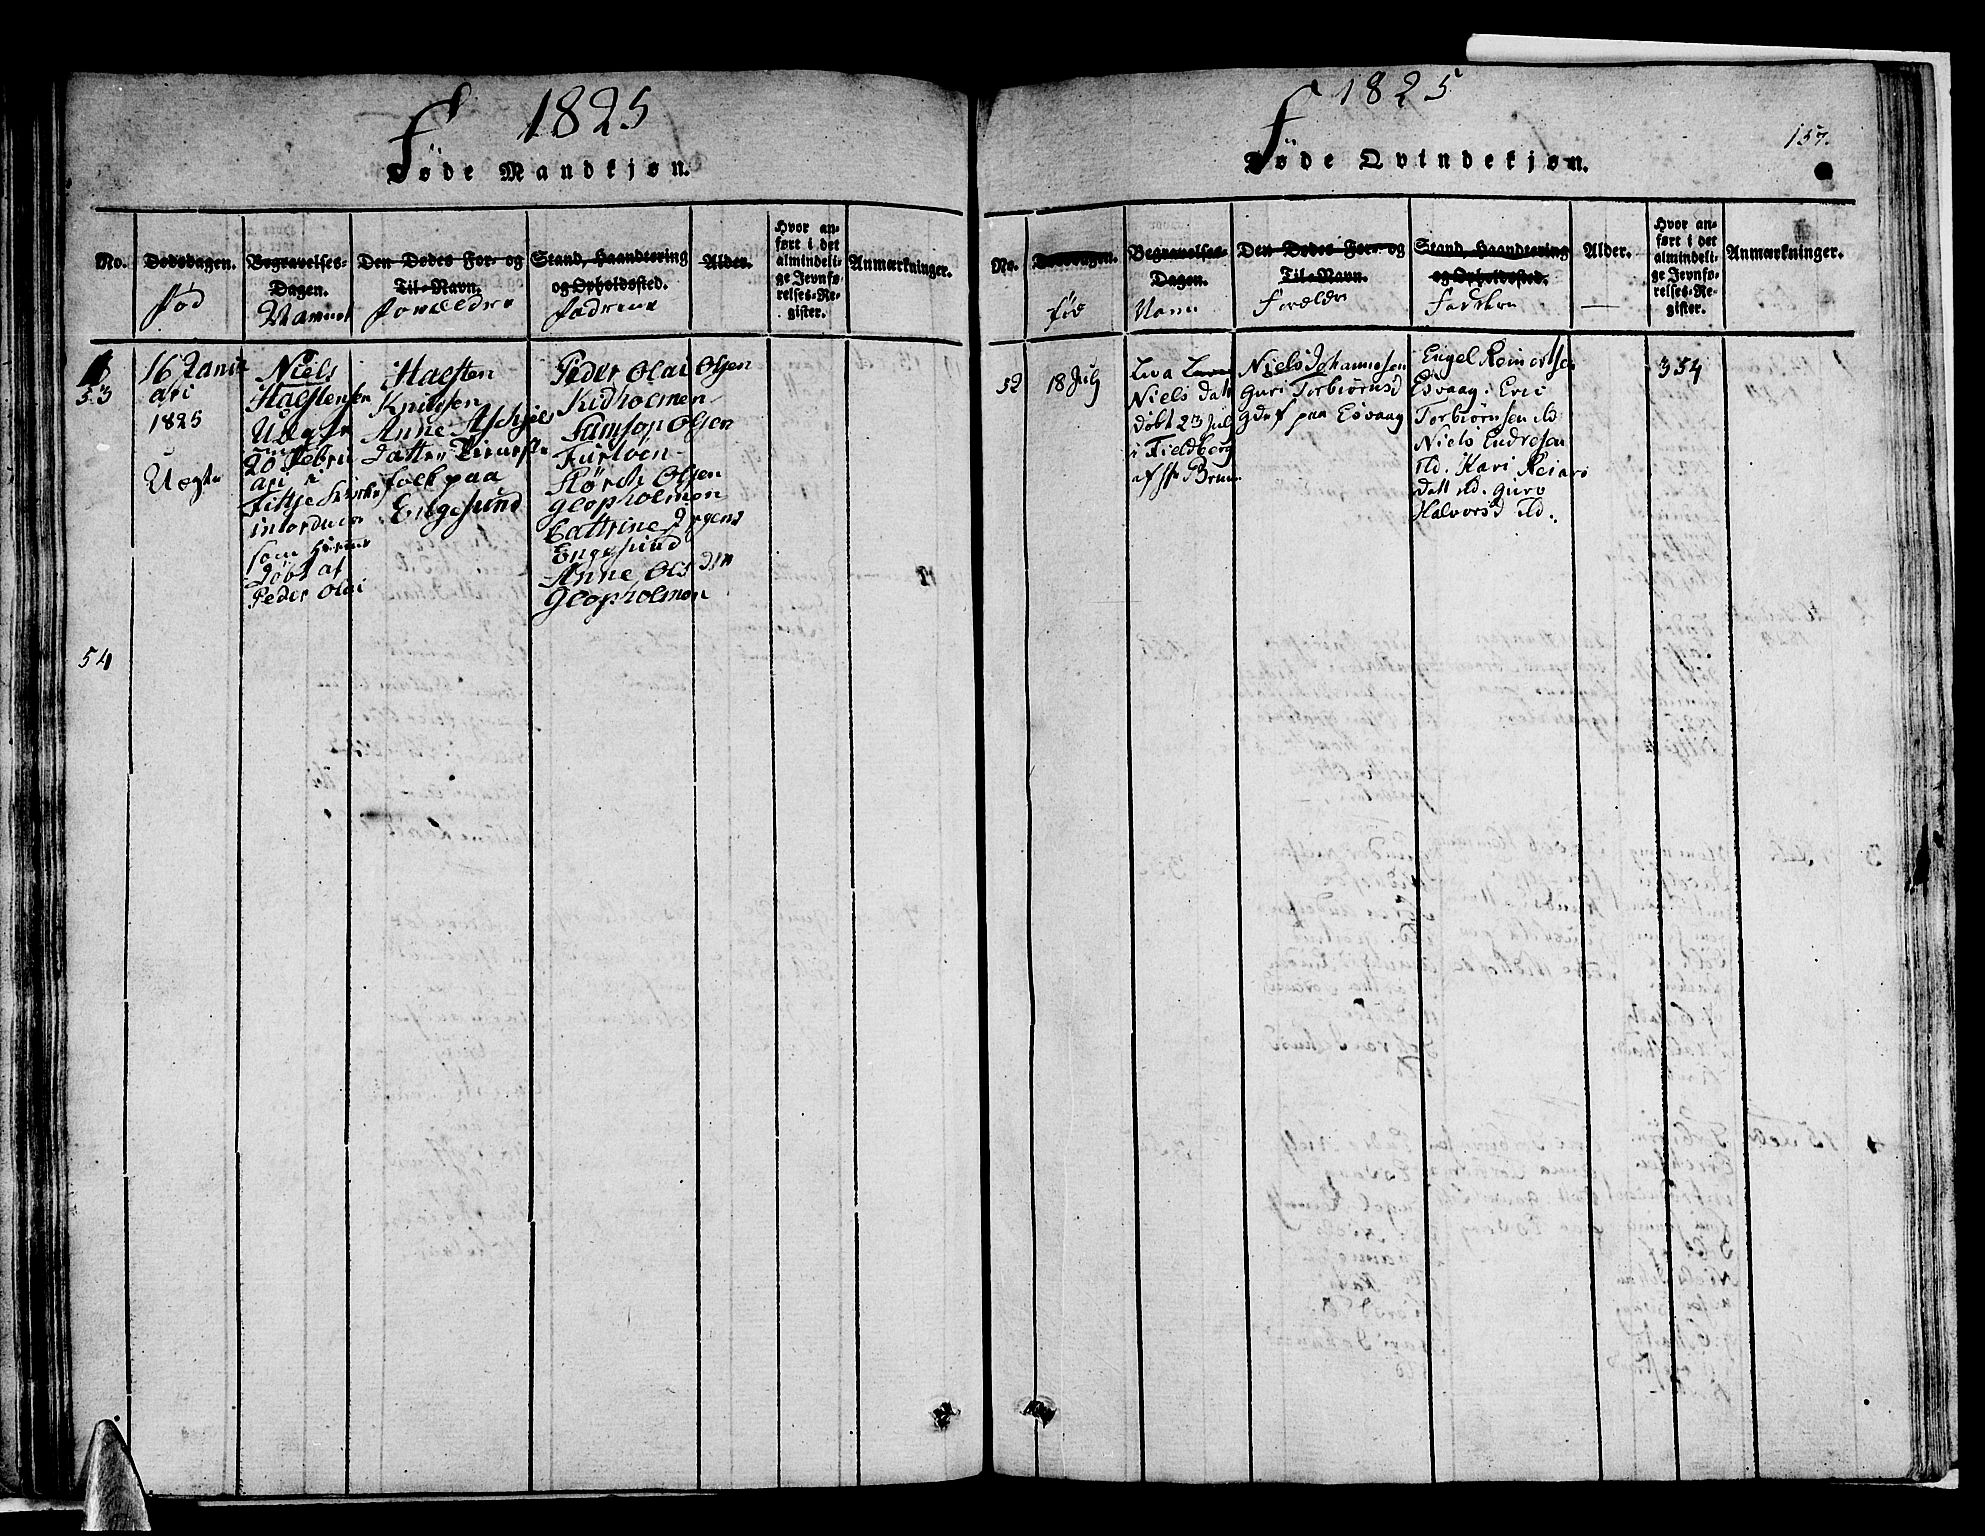 1825
Føde Mandkjøn.
No.
Dødsdagen.
Fød
Begravelses-
Dagen.
Navnet
Den Dødes For- og
Til-Navn.
Forældre
Stand, Haandtering
og Opholdssted.
Fadrene
Alder.
Hvor an-
ført i det
almindeli-
ge Jevnfø-
relses-Re-
gister.
Anmærkninger.
53
16 Janu
ari
1825
Uægte
Niels
Haastensen
Uægte
20 Febru
ari
Fittje Kirke
som hiemme
Døbt af
Peder Olai
Haasten
Knudsen
Anne
Datter
folk paa
Engesund
Peder Olai Olsen
Kidholmen
Samson Olsen
Størck Olsen
Glopholmen
Cattrine
Engesund
Anne Ols
Glopholmen
54
1825
157.
Føde Qvindekjøn.
No.
Dødsdagen.
fød
Begravelses-
Dagen.
Navn
Den Dødes For- og
Til-Navn.
Forældre
Stand, Haandtering
og Opholdssted.
Faddere
Alder.
—
Hvor an-
ført i det
almindeli-
ge Jevnfø-
relses-Re-
gister.
Anmærkninger.
52
18 July
Niels Datt
døbt 23 Jul
i Fieldberg
af Hr Bruun
Niels Johannesen
Guri Torbiørnsd
gdf paa Esvaag
Engel Reinertsen
Esvaag. Eric
Torbiørnsen ibd
Niels Endresen
ibd. Kari Reiars
datt ibd. Guro
Halvorsd ibd.
354